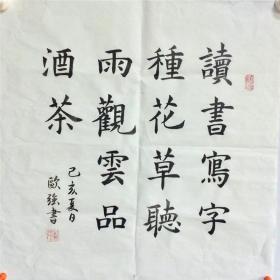 讀書寫字
種花草聽
雨觀雲品
酒茶
己亥夏日
歐強書